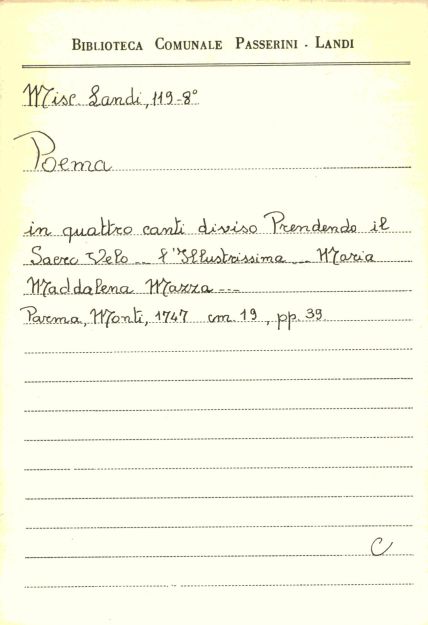 BIBLIOTECA COMUNALE PASSERINI - LANDI
Misc. Landi, 119-8°
Poema
in quattro canti diviso Prendendo il
Sacro Velo ... l'Illustrissima ... Maria
Maddalena Mazza ...
Parma, Monti, 1747 cm. 19, pp. 39
C